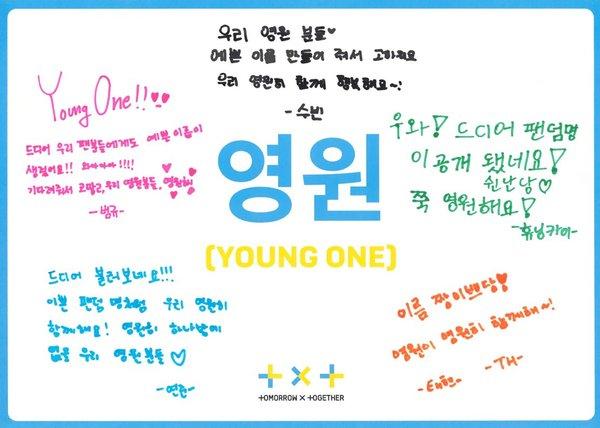 우리 영원 분들♡
예쁜 이름 만들어 줘서 고마워요
우리 영원히 함께 행복해요~!
-수빈
Young One!!♡♡
드디어 우리 팬분들에게도 예쁜이름이
생겼어요!! 와아아아!!!!
기다려줘서 고맙고, 우리 영원분들, 영원해
-범규-
우와! 드디어 팬덤명
이 공개 됐네요!
신난당♡
쭉 영원해요!
-휴닝카이-
영원
(YOUNG ONE)
드디어 불러보네요!!!
이쁜 팬덤 명처럼 우리 영원히
함께해요! 영원히 하나밖에
없을 우리 영원분들♡
-연준-
이름 짱이쁘당♡
영원이 영원히 함께해~!
-태현- -TH-
TOMORROW X TOGETHER